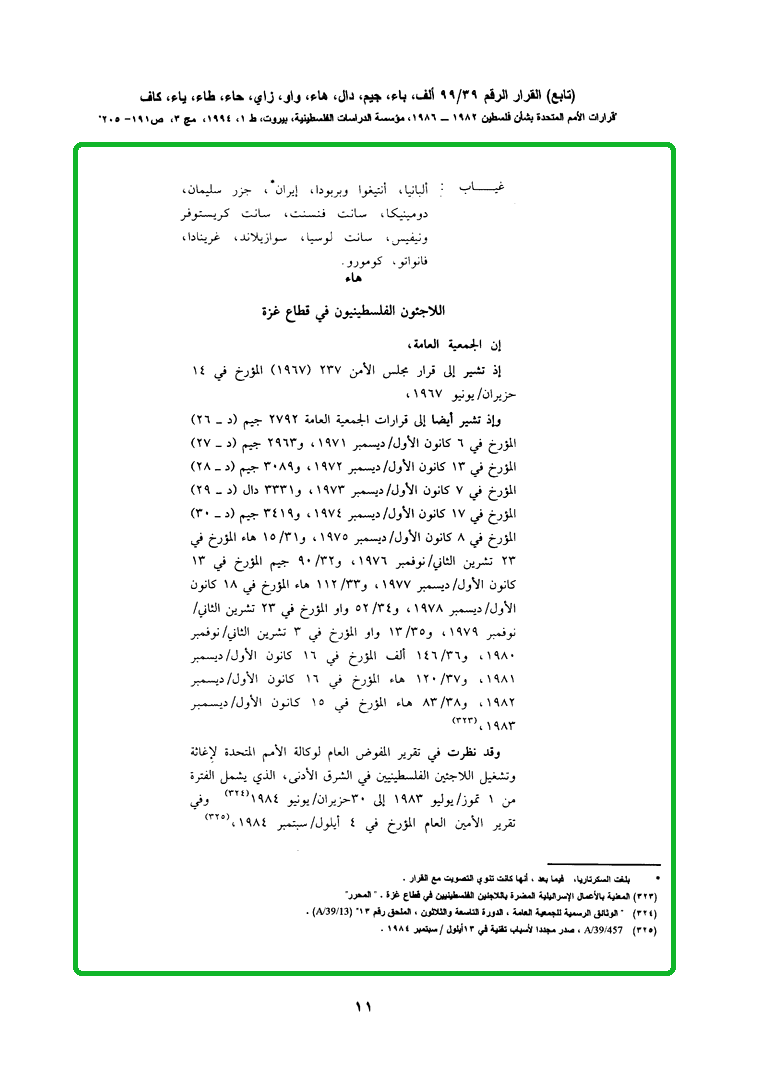 (تابع) القرار الرقم ٩٩/٣٩ ألف، باء، جيم، دال، هاء، واو، زاي، حاء، طاء، ياء، كاف
"قرارات الأمم المتحدة بشأن فلسطين ١٩٨٢ ــ ١٩٨٦، مؤسسة الدراسات الفلسطينية، بيروت، ط ١، ١٩٩٤، مج ٣، ص١٩١- ٢٠٥"
غيـــاب : ألبانيا، أنتيغوا وبربودا، إيران*، جزر سليمان،
دومينيكا، سانت فنسنت، سانت كريستوفر
ونيفيس، سانت لوسيا، سوازيلاند، غرينادا،
فانواتو، كومورو.
هاء
اللاجئون الفلسطينيون في قطاع غزة
إن الجمعية العامة،
إذ تشير إلى قرار مجلس الأمن ٢٣٧ (١٩٦٧) المؤرخ في ١٤
حزيران/يونيو ١٩٦٧،
وإذ تشير أيضا إلى قرارات الجمعية العامة ٢٧٩٢ جيم (د ــ ٢٦)
المؤرخ في ٦ كانون الأول/ديسمبر ١٩٧١، و٢٩٦٣ جيم (د ــ ٢٧)
المؤرخ في ١٣ كانون الأول/ديسمبر ١٩٧٢، و٣٠٨٩ جيم (د ــ ٢٨)
المؤرخ في ٧ كانون الأول/ديسمبر ١٩٧٣، و٣٣٣١ دال (د ــ ٢٩)
المؤرخ في ١٧ كانون الأول/ديسمبر ١٩٧٤، و٣٤١٩ جيم (د ــ ٣٠)
المؤرخ في ٨ كانون الأول/ديسمبر ١٩٧٥، و١٥/٣١ هاء المؤرخ في
٢٣ تشرين الثاني/نوفمبر ١٩٧٦، و٩٠/٣٢ جيم المؤرخ في ١٣
كانون الأول/ديسمبر ١٩٧٧، و١١٢/٣٣ هاء المؤرخ في ١٨ كانون
الأول/ديسمبر ١٩٧٨، و٥٢/٣٤ واو المؤرخ في ٢٣ تشرين الثاني/
نوفمبر ١٩٧٩، و١٣/٣٥ واو المؤرخ في ٣ تشرين الثاني/نوفمبر
١٩٨٠، و١٤٦/٣٦ ألف المؤرخ في ١٦ كانون الأول/ديسمبر
١٩٨١، و١٢٠/٣٧ هاء المؤرخ في ١٦ كانون الأول/ديسمبر
١٩٨٢، و٨٣/٣٨ هاء المؤرخ في ١٥ كانون الأول/ديسمبر
١٩٨٣،(٣٢٣)
وقد نظرت في تقرير المفوض العام لوكالة الأمم المتحدة لإغاثة
وتشغيل اللاجئين الفلسطينيين في الشرق الأدنى، الذي يشمل الفترة
من ١ تموز/يوليو ١٩٨٣ إلى ٣٠حزيران/يونيو ١٩٨٤(٣٢٤) وفي
تقرير الأمين العام المؤرخ في ٤ أيلول/سبتمبر ١٩٨٤،(٣٢٥)
* بلغت السكرتاريا، فيما بعد ، أنها كانت تنوي التصويت مع القرار .
(٣٢٣) المعنية بالأعمال الإسرائيلية المضرة باللاجئين الفلسطينيين في قطاع غزة . "المحرر"
(٣٢٤) "الوثائق الرسمية للجمعية العامة ، الدورة التاسعة والثلاثون ، الملحق رقم ١٣" (A/39/13) .
(٣٢٥) A/39/457 ، صدر مجددا لأسباب تقنية في ١٣أيلول / سبتمبر ١٩٨٤ .
١١